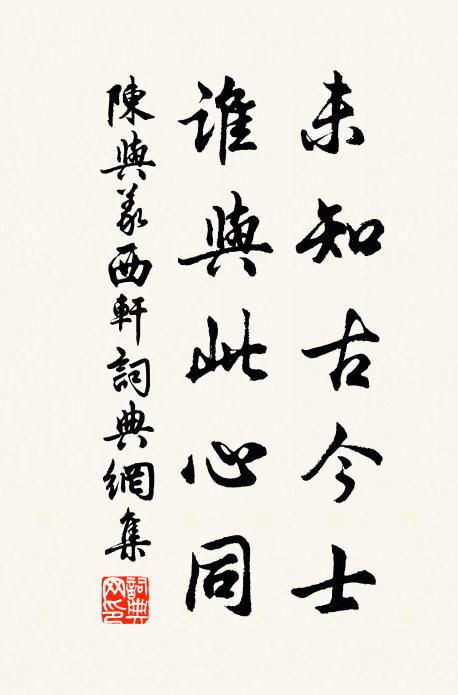 未知古今士
誰與此心同
陳與義西軒詞典網集
詞典網印